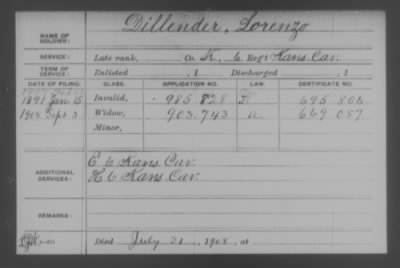 NAME OF SOLDIER: Dillender, Lorenzo
SERVICE: Late rank, Co. K, 6 Reg't Kans. Cav.
TERM OF SERVICE: Enlisted , 1 Discharged , 1
DATE OF FILING. CLASS. APPLICATION NO. LAW. CERTIFICATE NO.
1891 Jan 15 Invalid, 985.828 695.806
1908 Sept 3 Widow, 903.743 a 669 087
Minor,
ADDITIONAL SERVICES: E 6 Kans. Cav.
H 6 Kans. Cav.
REMARKS:
Died July 21, 1908, at